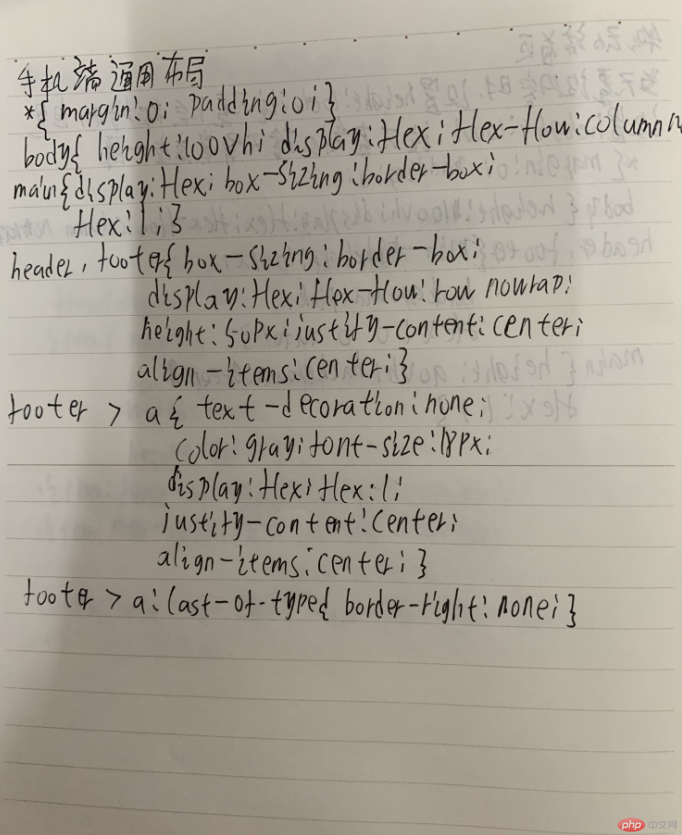 手机端通用布局
*{ margin:0; padding:0;}
body{ height:100vh; display:flex; flex-flow:column n
main{display:flex; box-sizing:border-box;
flex:1;}
header, footer{ box-sizing:border-box;
display:flex; flex-flow:row nowrap;
height:50px; justify-content:center;
align-items:center;}
footer > a{ text-decoration:none;
color:gray; font-size:18px;
display:flex; flex:1;
justify-content:center;
align-items:center;}
footer > a:last-of-type{ border-right:none;}
php 中文网